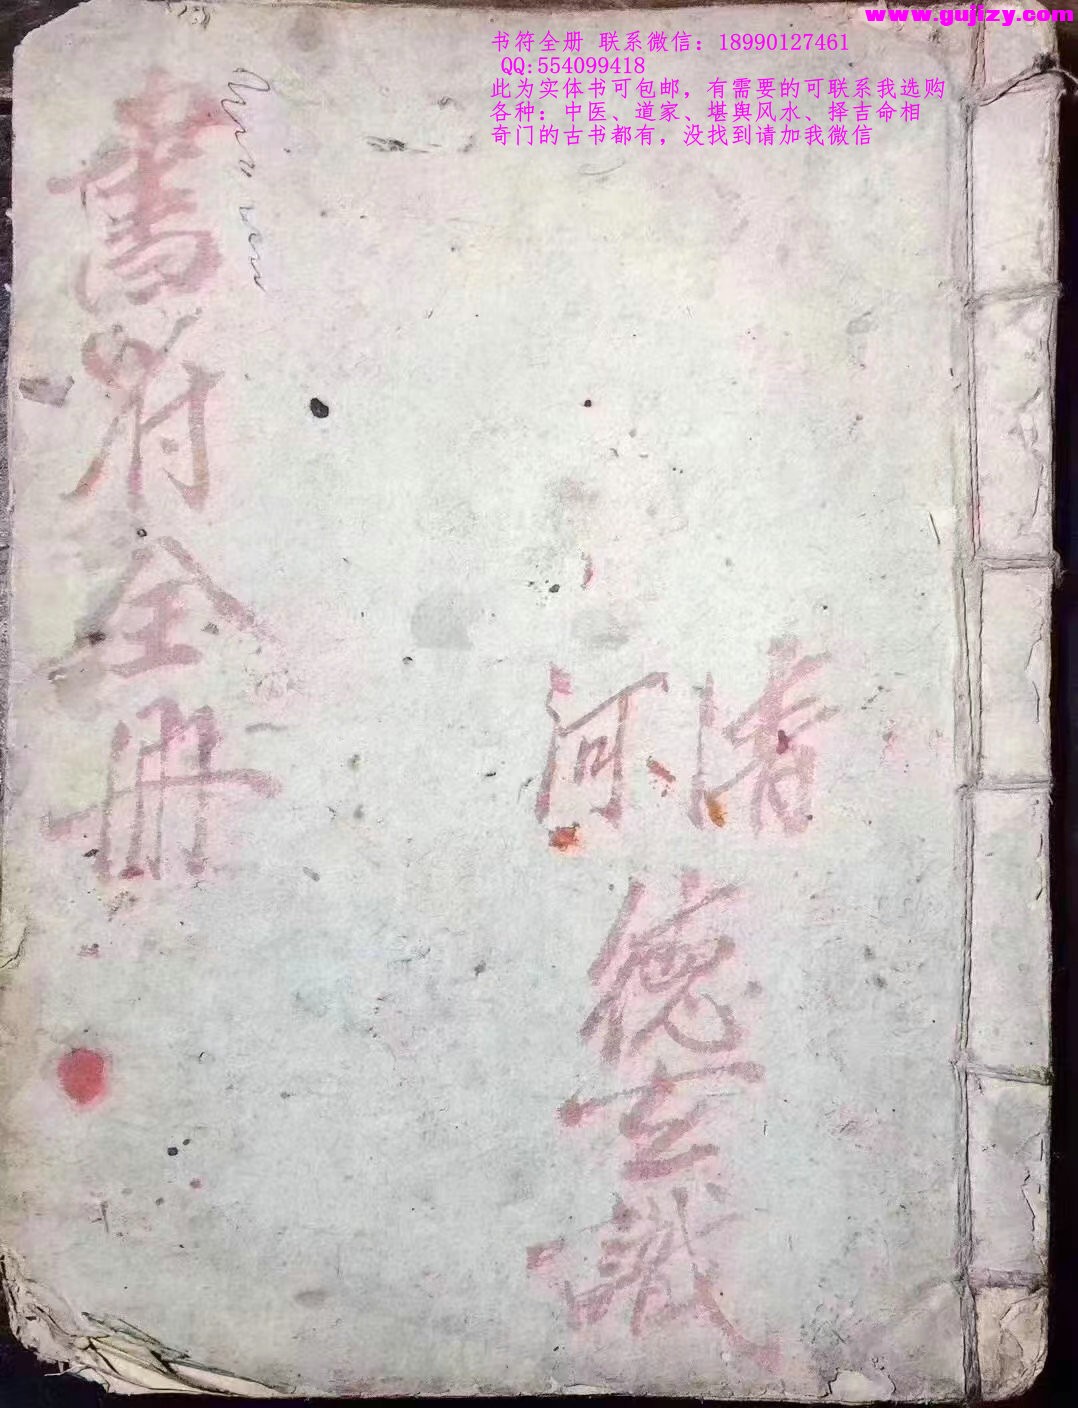 www.gujizy.com
书符全册 联系微信：18990127461
QQ:554099418
此为实体书可包邮，有需要的可联系我选购
各种：中医、道家、堪舆风水、择吉命相
奇门的古书都有，没找到请加我微信
書符全册
清河
德玄識